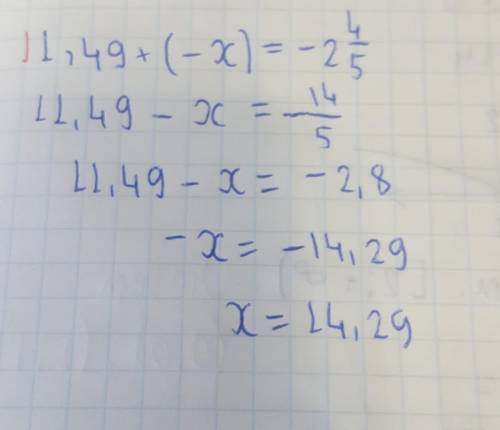 11,49 + (-x) = -2 4/5
11,49 - x = -14/5
11,49 - x = -2,8
-x = -14,29
x = 14,29